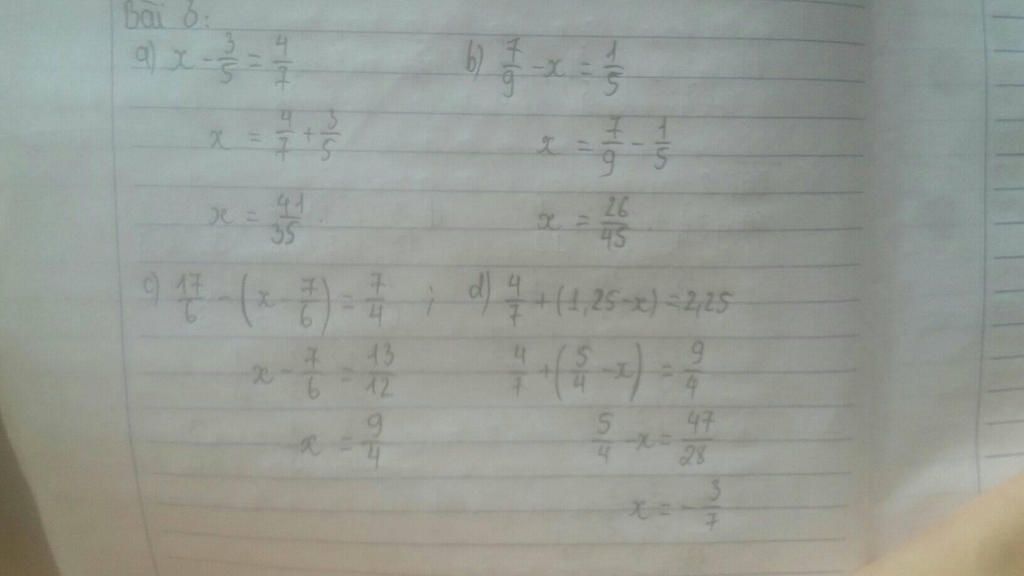 Bài 6:
a) x - 3/5 = 4/7
x = 4/7 + 3/5
x = 41/35.
b) 7/9 - x = 1/5
x = 7/9 - 1/5
x = 26/45.
c) 17/6 - (x - 7/6) = 7/4 ;
x - 7/6 = 13/12
x = 9/4
d) 4/7 + (1,25 - x) = 2,25
4/7 + (5/4 - x) = 9/4
5/4 - x = 47/28
x = -3/7